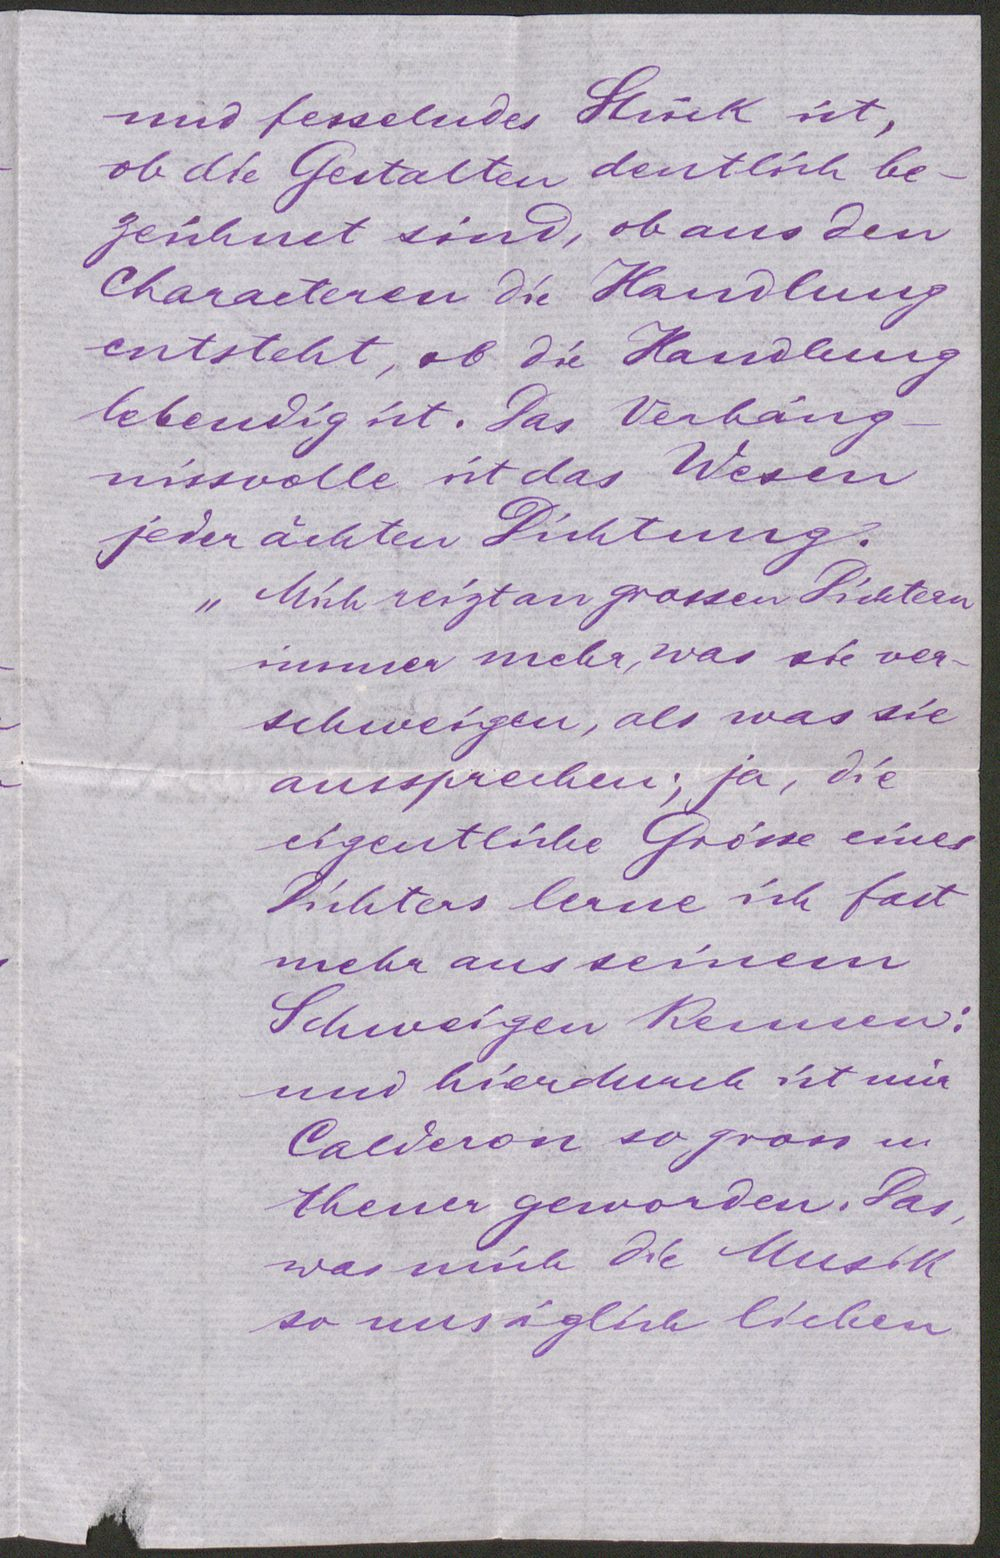 und fesselndes Stück ist,
ob die Gestalten deutlich be-
zeichnet sind, ob aus den
Characteren die Handlung
entsteht, ob die Handlung
lebendig ist. Das Verhäng-
nissvolle ist das Wesen
jeder ächten Dichtung.
„ Mich reizt an grossen Dichtern
immer mehr, was sie ver-
schweigen, als was sie
aussprechen; ja, die
eigentliche Grösse eines
Dichters lerne ich fast
mehr aus seinem
Schweigen kennen:
und hierdurch ist mir
Calderon so gross u
theuer geworden. Das,
was mich die Musik
so unsäglich lieben